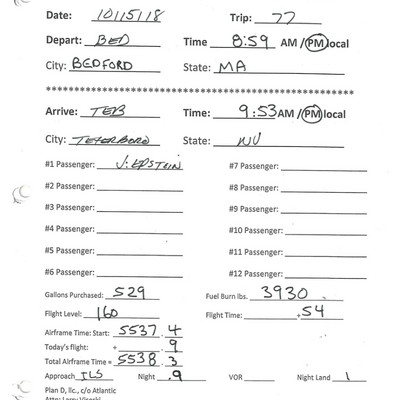 Date: 10/15/18 Trip: 77
Depart: BED Time 8:59 AM / PM local
City: BEDFORD State: MA
************************************************
Arrive: TEB Time: 9:53 AM / PM local
City: TETERBORO State: NJ
#1 Passenger: J. EPSTEIN #7 Passenger:
#2 Passenger: #8 Passenger:
#3 Passenger: #9 Passenger:
#4 Passenger: #10 Passenger:
#5 Passenger: #11 Passenger:
#6 Passenger: #12 Passenger:
Gallons Purchased: 529 Fuel Burn lbs. 3930
Flight Level: 160 Flight Time: .54
Airframe Time: Start: 5537.4
Today's flight: + .9
Total Airframe Time = 5538.3
Approach ILS Night .9 VOR Night Land 1
Plan D, llc., c/o Atlantic
Attn: Larry Visoski